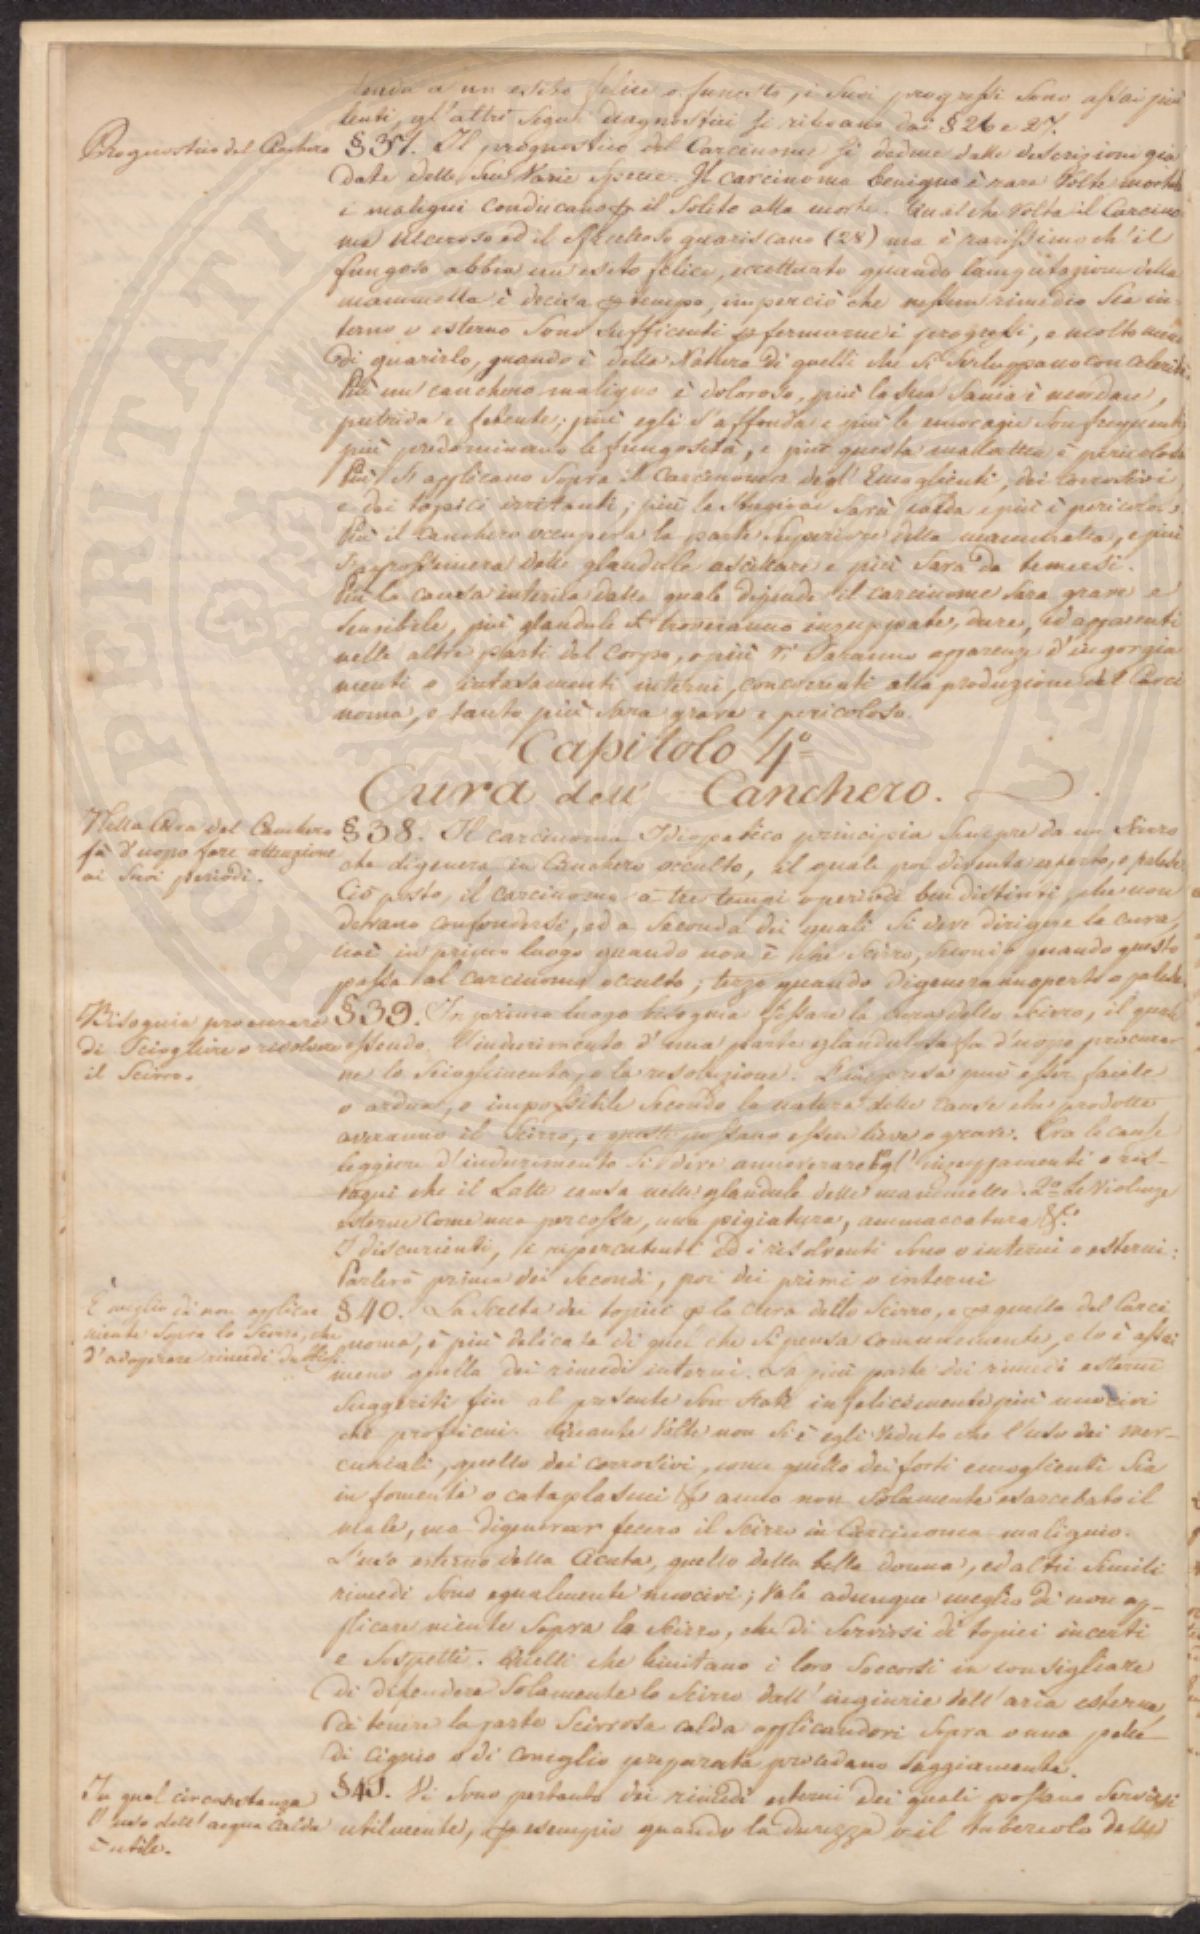 tenda a un esito felice o funesto, i suoi progressi sono assai più
lenti, gl'altri segni diagnostici si ricavano dai §26 e 27.
Prognostico del Canchero
§37. Il prognostico del Carcinoma si deduce dalle descrizioni già
date delle sue Varie Specie. Il carcinoma benigno è rare Volte mortale
i maligni conducano per il solito alla morte. Qualche Volta il Carcino-
ma ulceroso ed il guariscano (28) ma è rarissimo ch'il
fungoso abbia un esito felice, eccettuato quando l'amputazione della
mammella è decisa per tempo, imperciò che nessun rimedio sia in-
terno o esterno sono sufficenti per fermarne i progressi, e molto meno
di guarirlo, quando è della Natura di quelli che si sviluppano con celerità.
Più un canchero maligno è doloroso, più la sua sania è mordace,
putrida e fetente; più egli s'affonda e più le emoragie son frequenti,
più predominano le fungosità, e più questa malattia è pericolosa
Più si applicano sopra il Carcinoma degl'Emoglienti, dei corrosivi
e dei topici irritanti; più la stagione sarà calda e più è pericoloso
Più il Canchero occuperà la parte superiore della mammella, e più
s'approssimerà delle glandule ascellare e più sarà da temersi.
Più la causa interna dalla quale dipende il carcinome sara grave e
sensibile, più glandule si troveranno inguppate, dure, ed apparenti
nelle altre parti del corpo, e più vi saranno apparenze d'ingorgia
menti o intasamenti interni, concorrenti alla produzione del Carci
noma, e tanto più sara grave e pericoloso.
Capitolo 4º
Cura dell' Canchero.
Nella Cura del Canchero
fà d'uopo fare attenzione
ai suoi periodi.
§38. Il carcinoma Idiopatico principia sempre da un Scirro
che digenera in Canchero occulto, il quale poi diventa aperto, o palese
Ciò posto, il carcinoma à tre tempi o periodi ben distinti, che non
devano confondersi, ed a seconda dei quali si deve dirigere la cura,
cioè in primo luogo quando non è che Scirro, secondo quando questo
passa al carcinoma occulto; terzo quando digenera in aperto o palese.
Bisognia procurare
di sciogliere o risolvere
il Scirro.
§39. In primo luogo bisognia fissare la cura dello Scirro, il quale
essendo l'indurimento d'una parte glandulosa fa d'uopo procurar
ne lo scioglimento, o la resoluzione. L'impresa può esser facile
o ardua, o impossibile secondo la natura delle cause che prodotto
averanno il Scirro, e queste possano essere lieve o grave. Tra le cause
leggiere d'indurimento si deve annoverare gl'ingruppamenti o ris-
tagni che il Latte causa nelle glandule delle mammelle. 2º Le Violenze
esterne come una percossa, una pigiatura, ammaccatura &c.
I discuzienti, le ripercutenti ed i risolventi sono o interni o esterni:
Parlerò prima dei secondi, poi dei primi o interni
È meglio di non applicar
niente sopra lo Scirro, che
d'adoperare rimedi dubbiosi.
§40. La scelta dei topici per la cura dello Scirro, e per quella del Carci
noma, è più delicata di quel che si pensa comunemente, e lo è assai
meno quella dei rimedi interni. La più parte dei rimedi esterni
suggeriti fin al presente son stati infelicemente più nuocivi
che proficui. Quante Volte non si è egli Veduto che l'uso dei mer-
curiali, quello dei corrosivi, come quello dei forti emoglienti sia
in fomente o cataplasmi &c anno non solamente esarcebato il
male, ma digenerar fecero il Scirro in Carcinoma maligno.
L'uso esterno della Cicuta, quello della bella donna, ed altri simili
rimedi sono egualmente nuocivi; Vale adunque meglio di non ap-
plicare niente sopra lo Scirro, che di servirsi di topici incerti
e sospetti. Quelli che limitano i loro soccorsi in consigliare
di difendere solamente lo Scirro dall'ingiurie dell'aria esterna,
di tenere la parte Scirrosa calda applicandovi sopra o una pelle
di cignio o di coneglio preparata procedano saggiamente.
In qual circonstanza
l'uso dell'acqua calda
è utile.
§41. Vi sono pertanto dei rimedi esterni dei quali possano servirsi
utilmente, per esempio quando la durezza o il tubercolo della
PROSPERITATI